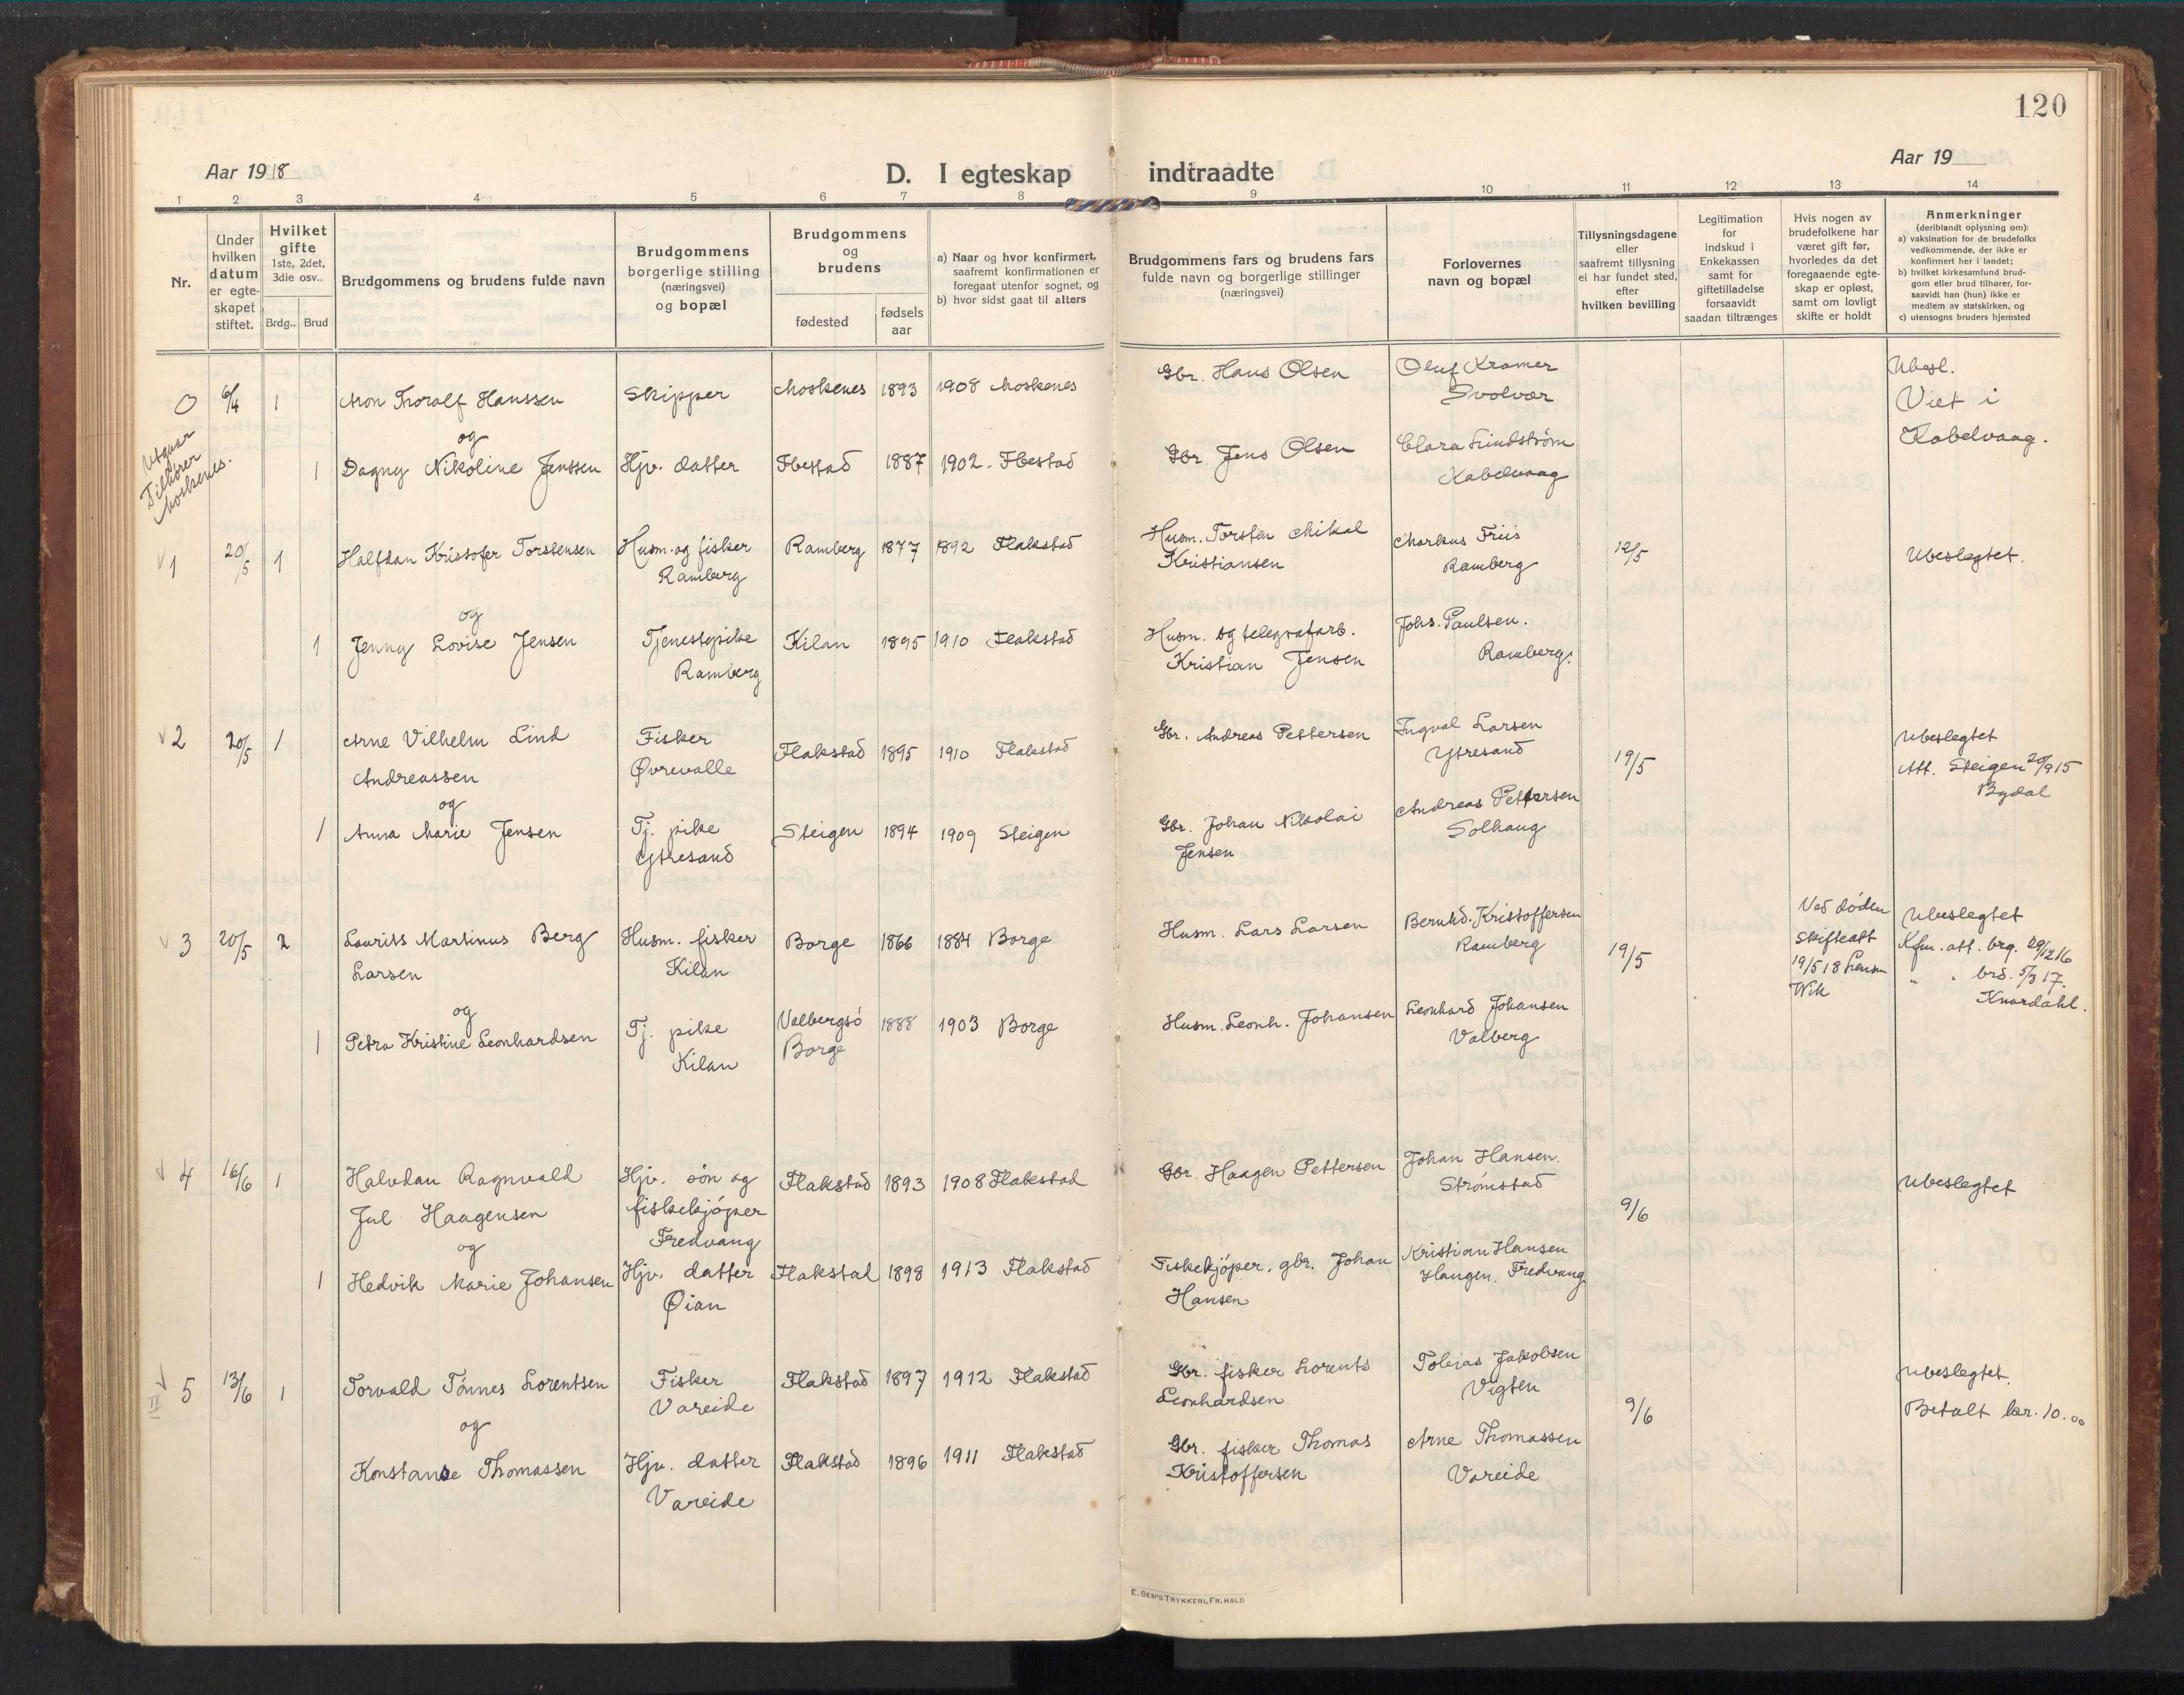 120
Aar 1918
D. I egteskap indtraadte
Aar 19
1 2 3 4 5 6 7 8 9 10 11 12 13 14
Nr.
Under hvilken datum er egte-skapet stiftet.
Hvilket gifte
1ste, 2det, 3die osv..
Brdg.. Brud
Brudgommens og brudens fulde navn
Brudgommens
borgerlige stilling
(næringsvei)
og bopæl
Brudgommens
og
brudens
fødested
fødsels
aar
a) Naar og hvor konfirmert,
saafremt konfirmationen er
foregaat utenfor sognet, og
b) hvor sidst gaat til alters
Brudgommens fars og brudens fars
fulde navn og borgerlige stillinger
(næringsvei)
Forlovernes
navn og bopæl
Tillysningsdagene
eller
saafremt tillysning
ei har fundet sted,
efter
hvilken bevilling
Legitimation
for
indskud i
Enkekassen
samt for
giftetilladelse
forsaavidt
saadan tiltrænges
Hvis nogen av
brudefolkene har
været gift før,
hvorledes da det
foregaaende egte-
skap er opløst,
samt om lovligt
skifte er holdt
Anmerkninger
(deriblandt oplysning om):
a) vaksination for de brudefolks
vedkommende, der ikke er
konfirmert her i landet;
b) hvilket kirkesamfund brud-
gom eller brud tilhører, for-
saavidt han (hun) ikke er
medlem av statskirken, og
c) utensogns bruders hjemsted
0 6/4 1 Aron Thoralf Hanssen Skipper Moskenes 1893 1908 Moskenes Gbr. Hans Olsen Oluf Kramer
Svolvær
Ubesl.
Viet i
Kabelvaag.
og
Utgaar
Tilhører
Moskenes.
1 Dagny Nikoline Jenssen Hjv. datter Ibestad 1887 1902. Ibestad Gbr. Jens Olsen Clara Lindstrøm
Kabelvaag
1 20/5 1 Halfdan Kristofer Torstensen Husm. og fisker
Ramberg
Ramberg 1877 1892 Flakstad Husm. Torsten Mikal
Kristiansen
Markus Friis
Ramberg
12/5 Ubeslegtet.
og
1 Jenny Lovise Jensen Tjenestepike
Ramberg
Kilan 1895 1910 Flakstad Husm. og telegrafarb.
Kristian Jensen
Johs. Paulsen.
Ramberg.
2 20/5 1 Arne Vilhelm Lind
Andreassen
Fisker
Øvrevalle
Flakstad 1895 1910 Flakstad Gbr. Andreas Pettersen Ingval Larsen
Ytresand
19/5 Ubeslegtet
Att. Steigen 20/9 15
Bydal
og
1 Anna Marie Jensen Tj. pike
Ytresand
Steigen 1894 1909 Steigen Gbr. Johan Nikolai
Jensen
Andreas Pettersen
Solhaug
3 20/5 2 Lauriss Martinus Berg
Larsen
Husm. fisker
Kilan
Borge 1866 1884 Borge Husm. Lars Larsen Bernhd. Kristoffersen
Ramberg
19/5 Ved døden
Skifteatt
19/5 18 Lensm
Wik
Ubeslegtet
Kfm. att. brg. 29/12 16
" " brd. 5/3 17.
Knardahl.
og
1 Petra Kristine Leonhardsen Tj. pike
Kilan
Valbergsö
Borge
1888 1903 Borge Husm. Leonh. Johansen Leonhard Johansen
Valberg
4 16/6 1 Halvdan Ragnvald
Jul Haagensen
Hjv. søn og
fiskekjøper
Fredvang
Flakstad 1893 1908 Flakstad Gbr. Haagen Pettersen Johan Hansen.
Strømstad
9/6 Ubeslegtet
og
1 Hedvik Marie Johansen Hjv. datter
Øian
Flakstad 1898 1913 Flakstad Fiskekjøper, gbr. Johan
Hansen
Kristian Hansen
Haugen, Fredvang
II 5 13/6 1 Torvald Tønnes Lorentsen Fisker
Vareide
Flakstad 1897 1912 Flakstad Gbr. fisker Lorents
Leonhardsen
Tobias Jakobsen
Vigten
9/6 Ubeslegtet.
Betalt kr. 10.00
og
Konstanse Thomassen Hjv. datter
Vareide
Flakstad 1896 1911 Flakstad Gbr. fisker Thomas
Kristoffersen
Arne Thomassen
Vareide
E. SEM'S TRYKKERI, FR.HALD